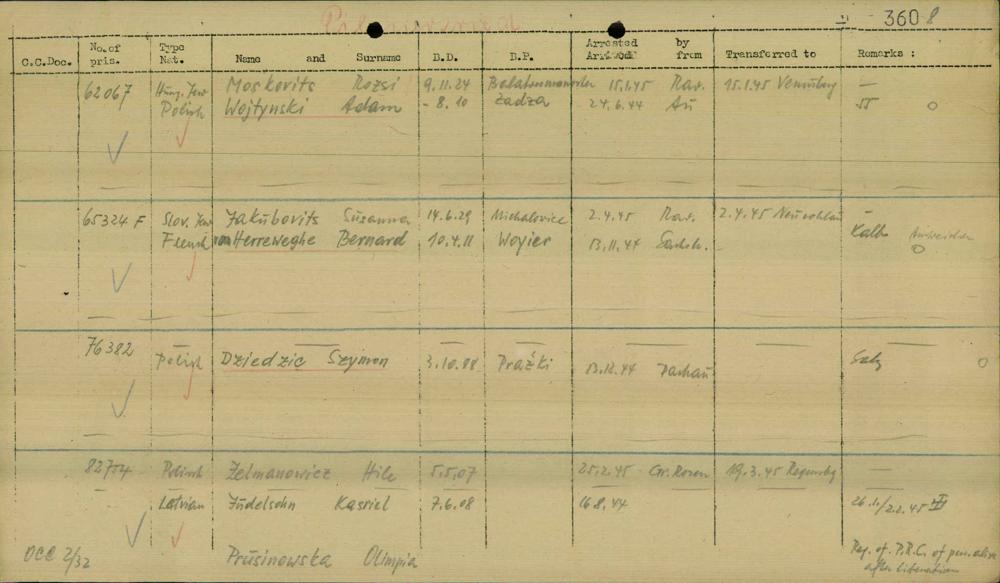 360 8
C.C.Doc. No. of pris. Type Nat. Name and Surname B.D. B.P. Arrested Arrived by from Transferred to Remarks :
62067 Hung. Jew Moskovits Rozsi 9.11.24 15.1.45 Rav. 15.1.45 —
Polish Wojtynski Adam - 8.10 Zadza 24.6.44 Au
65324 F Slov. Jew Jakubovits Susanna 14.6.29 Michalovice 2.4.45 Rav. 2.4.45 —
French van Herreweghe Bernard 10.4.11 Woyier 13.11.44 Sachsh.
76382
Polish Dziedzic Szymon 3.10.88 Prażki 13.12.44 Dachau
82754 Polish Zelmanowicz Hile 5.5.07 25.2.45 Gr. Rosen 19.3.45 —
Latvian Judelsohn Kasriel 7.6.08 16.8.44
OCC 2/32 Prusinowska Olimpia
after liberation